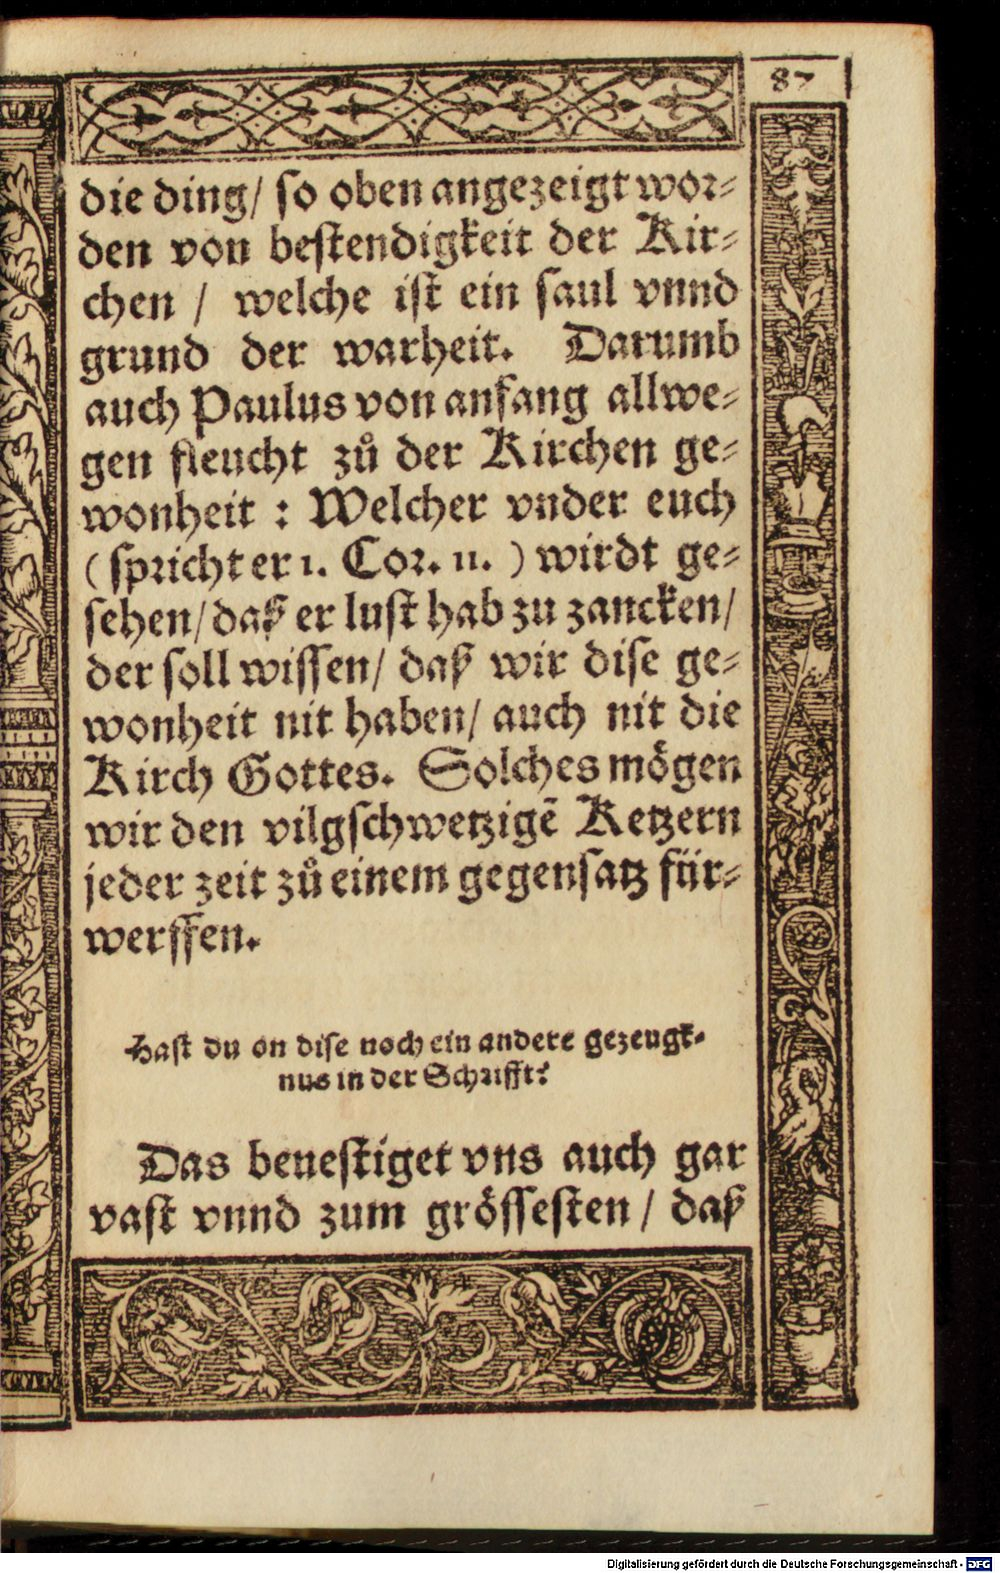 87
die ding/ so oben angezeigt wor⸗
den von bestendigkeit der Kir⸗
chen / welche ist ein saul vnnd
grund der warheit. Darumb
auch Paulus von anfang allwe⸗
gen fleucht zů der Kirchen ge⸗
wonheit : Welcher vnder euch
(spricht er 1. Cor. 11. ) wirdt ge⸗
sehen/ daß er lust hab zu zancken/
der soll wissen/ daß wir dise ge⸗
wonheit nit haben/ auch nit die
Kirch Gottes. Solches mögen
wir den vilgschwetzigē Ketzern
jeder zeit zů einem gegensatz für⸗
werffen.
Hast du on dise noch ein andere gezeugk⸗
nus in der Schrifft?
Das beuestiget vns auch gar
vast vnnd zum grössesten / daß
Digitalisierung gefördert durch die Deutsche Forschungsgemeinschaft - DFG